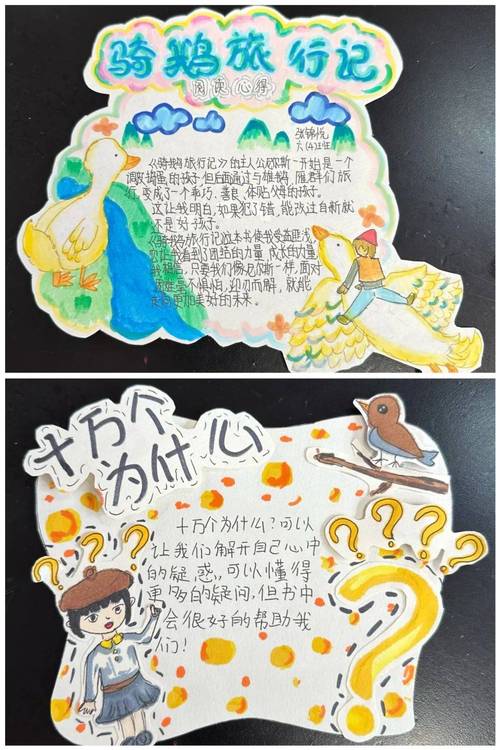 骑鹅旅行记
阅读心得
张锦悦
六(4)班
《骑鹅旅行记》的主人公尼尔斯一开始是一个
调皮捣蛋的孩子,但后面通过与雄鹅、雁群们旅
行,变成了一个乖巧、善良、体贴父母的孩子。
这让我明白,如果犯了错,能改过自新就
还是好孩子。
《骑鹅旅行记》这本书使我受益匪浅,
也让我看到了团结的力量,成长的力量,
我相信,只要我们像尼尔斯一样,面对
困难毫不惧怕,迎刃而解,就能
走向更加美好的未来。
十万个
为什么
十万个为什么?可以
让我们解开自己心中
的疑惑,可以懂得
更多的疑问,但书中
会很好的帮助我
们!